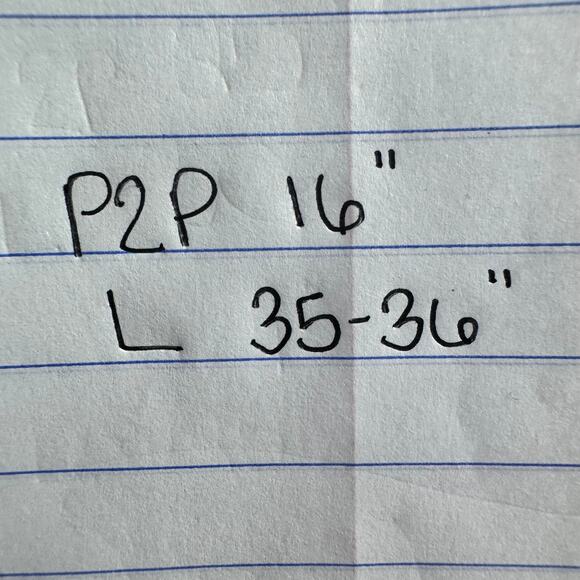 P2P 16"
L 35-36"